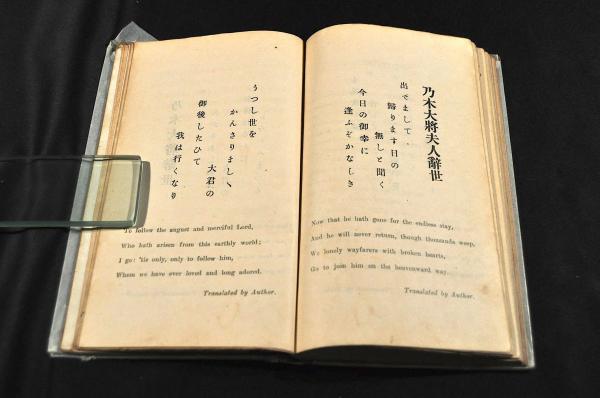 乃木大將夫人辭世
出でまして
歸ります日の
無しと聞く
今日の御幸に
逢ふぞかなしき
Now that he hath gone for the endless stay,
And he will never return, though thousands weep,
We lonely wayfarers with broken hearts,
Go to join him on the heavenward way.
Translated by Author.
うつし世を
かんさりましゝ
大君の
御後したひて
我は行くなり
To follow the august and merciful Lord,
Who hath arisen from this earthly world;
I go: 'tis only, only to follow him,
Whom we have ever loved and long adored.
Translated by Author.